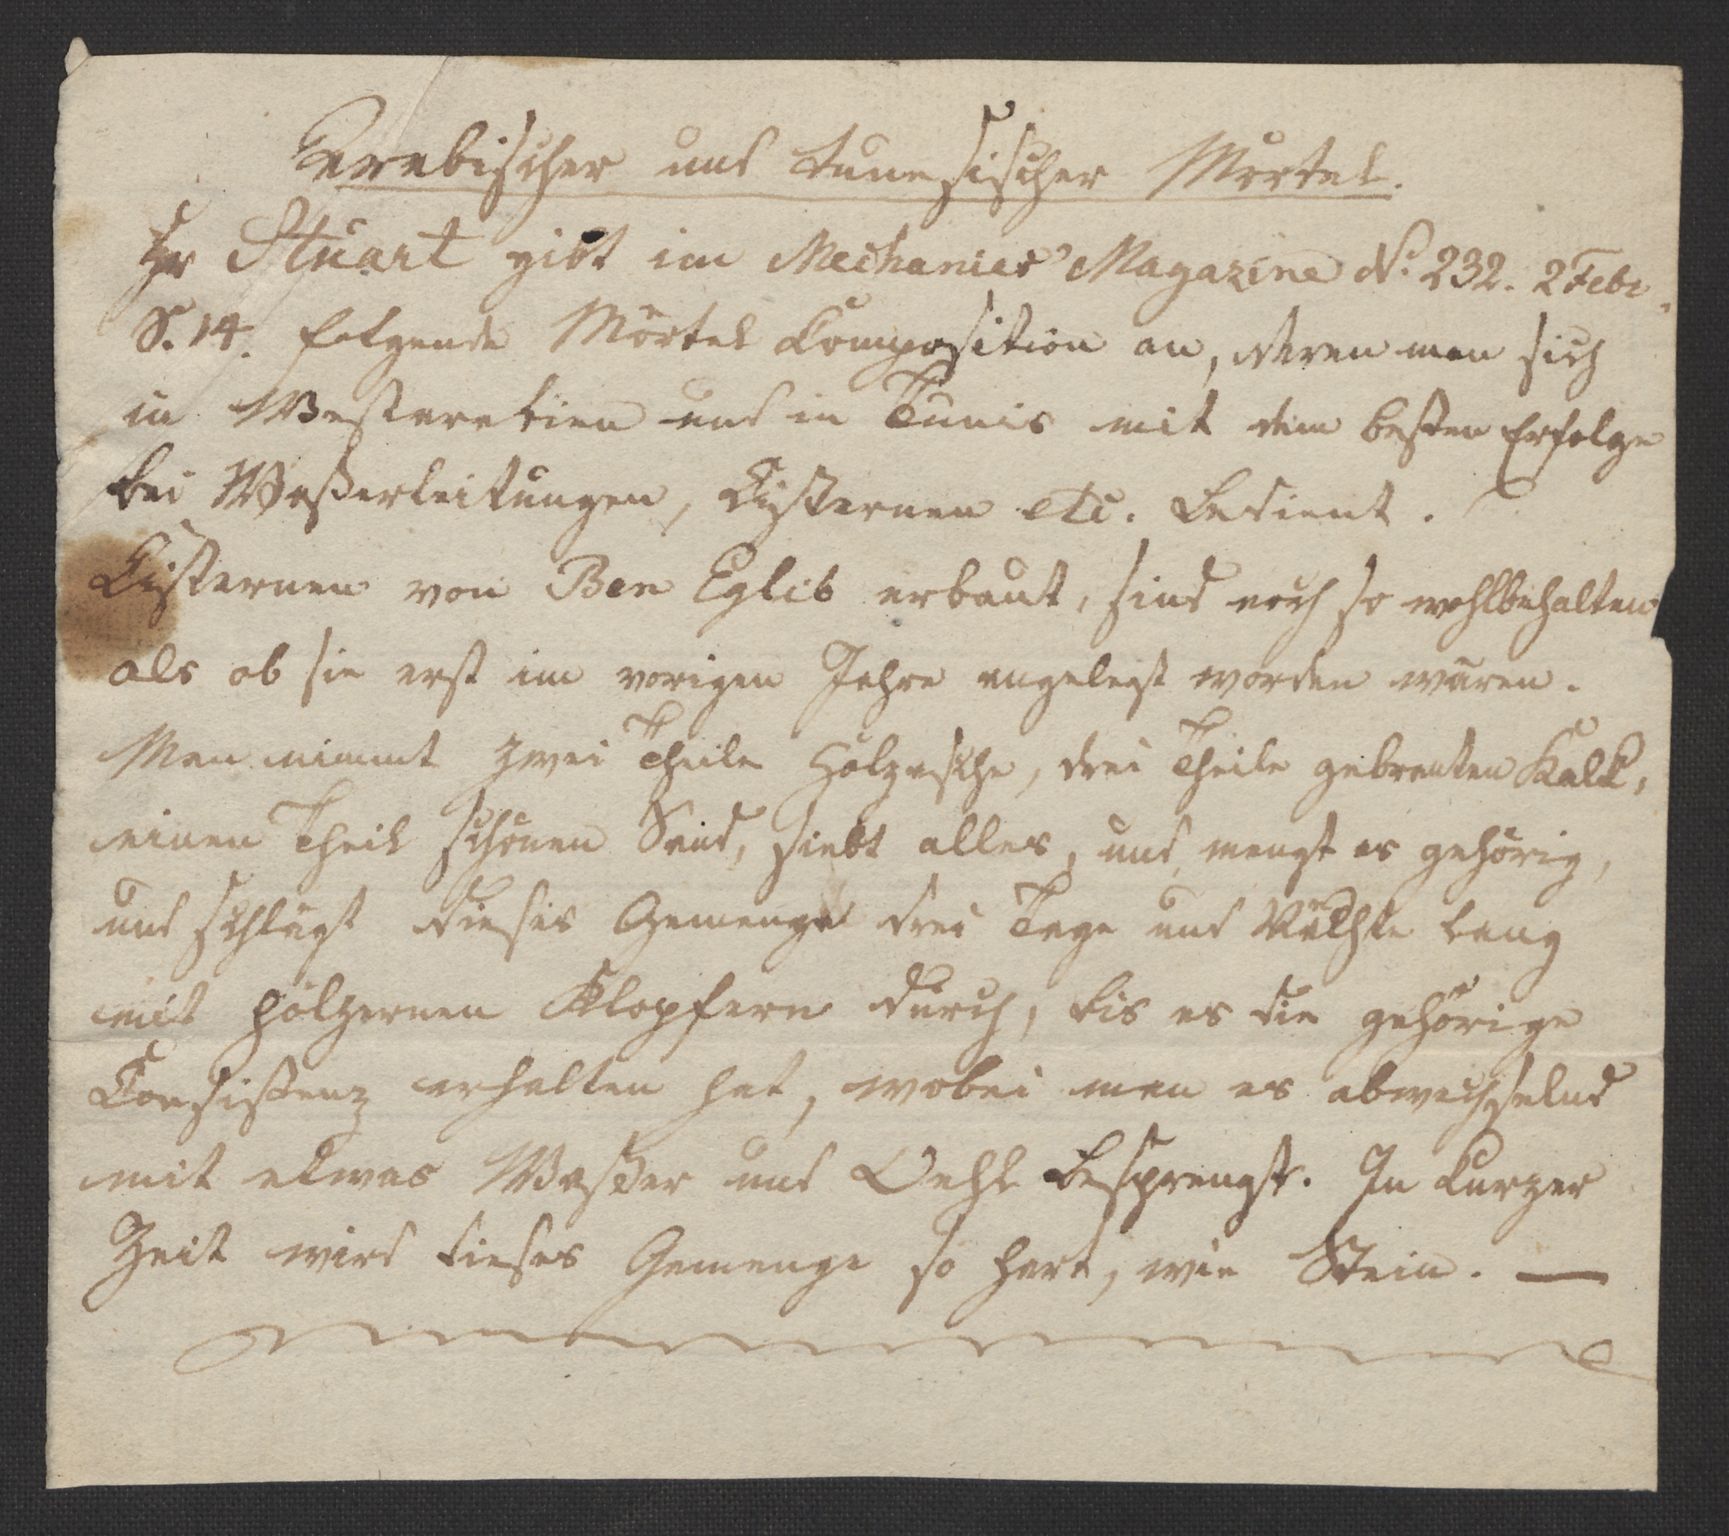 Arabischer und tunesischer Mörtel.
Hr Stuart gibt im Mechanics' Magazine N: 232. 2 Febr.
S. 14. folgende Mörtel Composition an, deren man sich
in Westarabien und in Tunis mit dem besten Erfolge
bei Waßerleitungen, Cysternen etc. bedient.
Cisternen von Ben Eglib erbaut, sind noch so wohlbehalten
als ob sie erst im vorigen Jahre angelegt worden wären.
Man nimmt zwei Theile Holzasche, drei Theile gebranten Kalk,
einen Theil schönen Sand, siebt alles, und mengt es gehörig,
und schlägt dieses Gemenge drei Tage und Nächte lang
mit hölzernen Klopfern durch, bis es die gehörige
Consistenz erhalten hat, wobei man es abwechselnd
mit etwas Waßer und Oehl besprengt. In kurzer
Zeit wird dieses Gemenge so hart, wie Stein. —